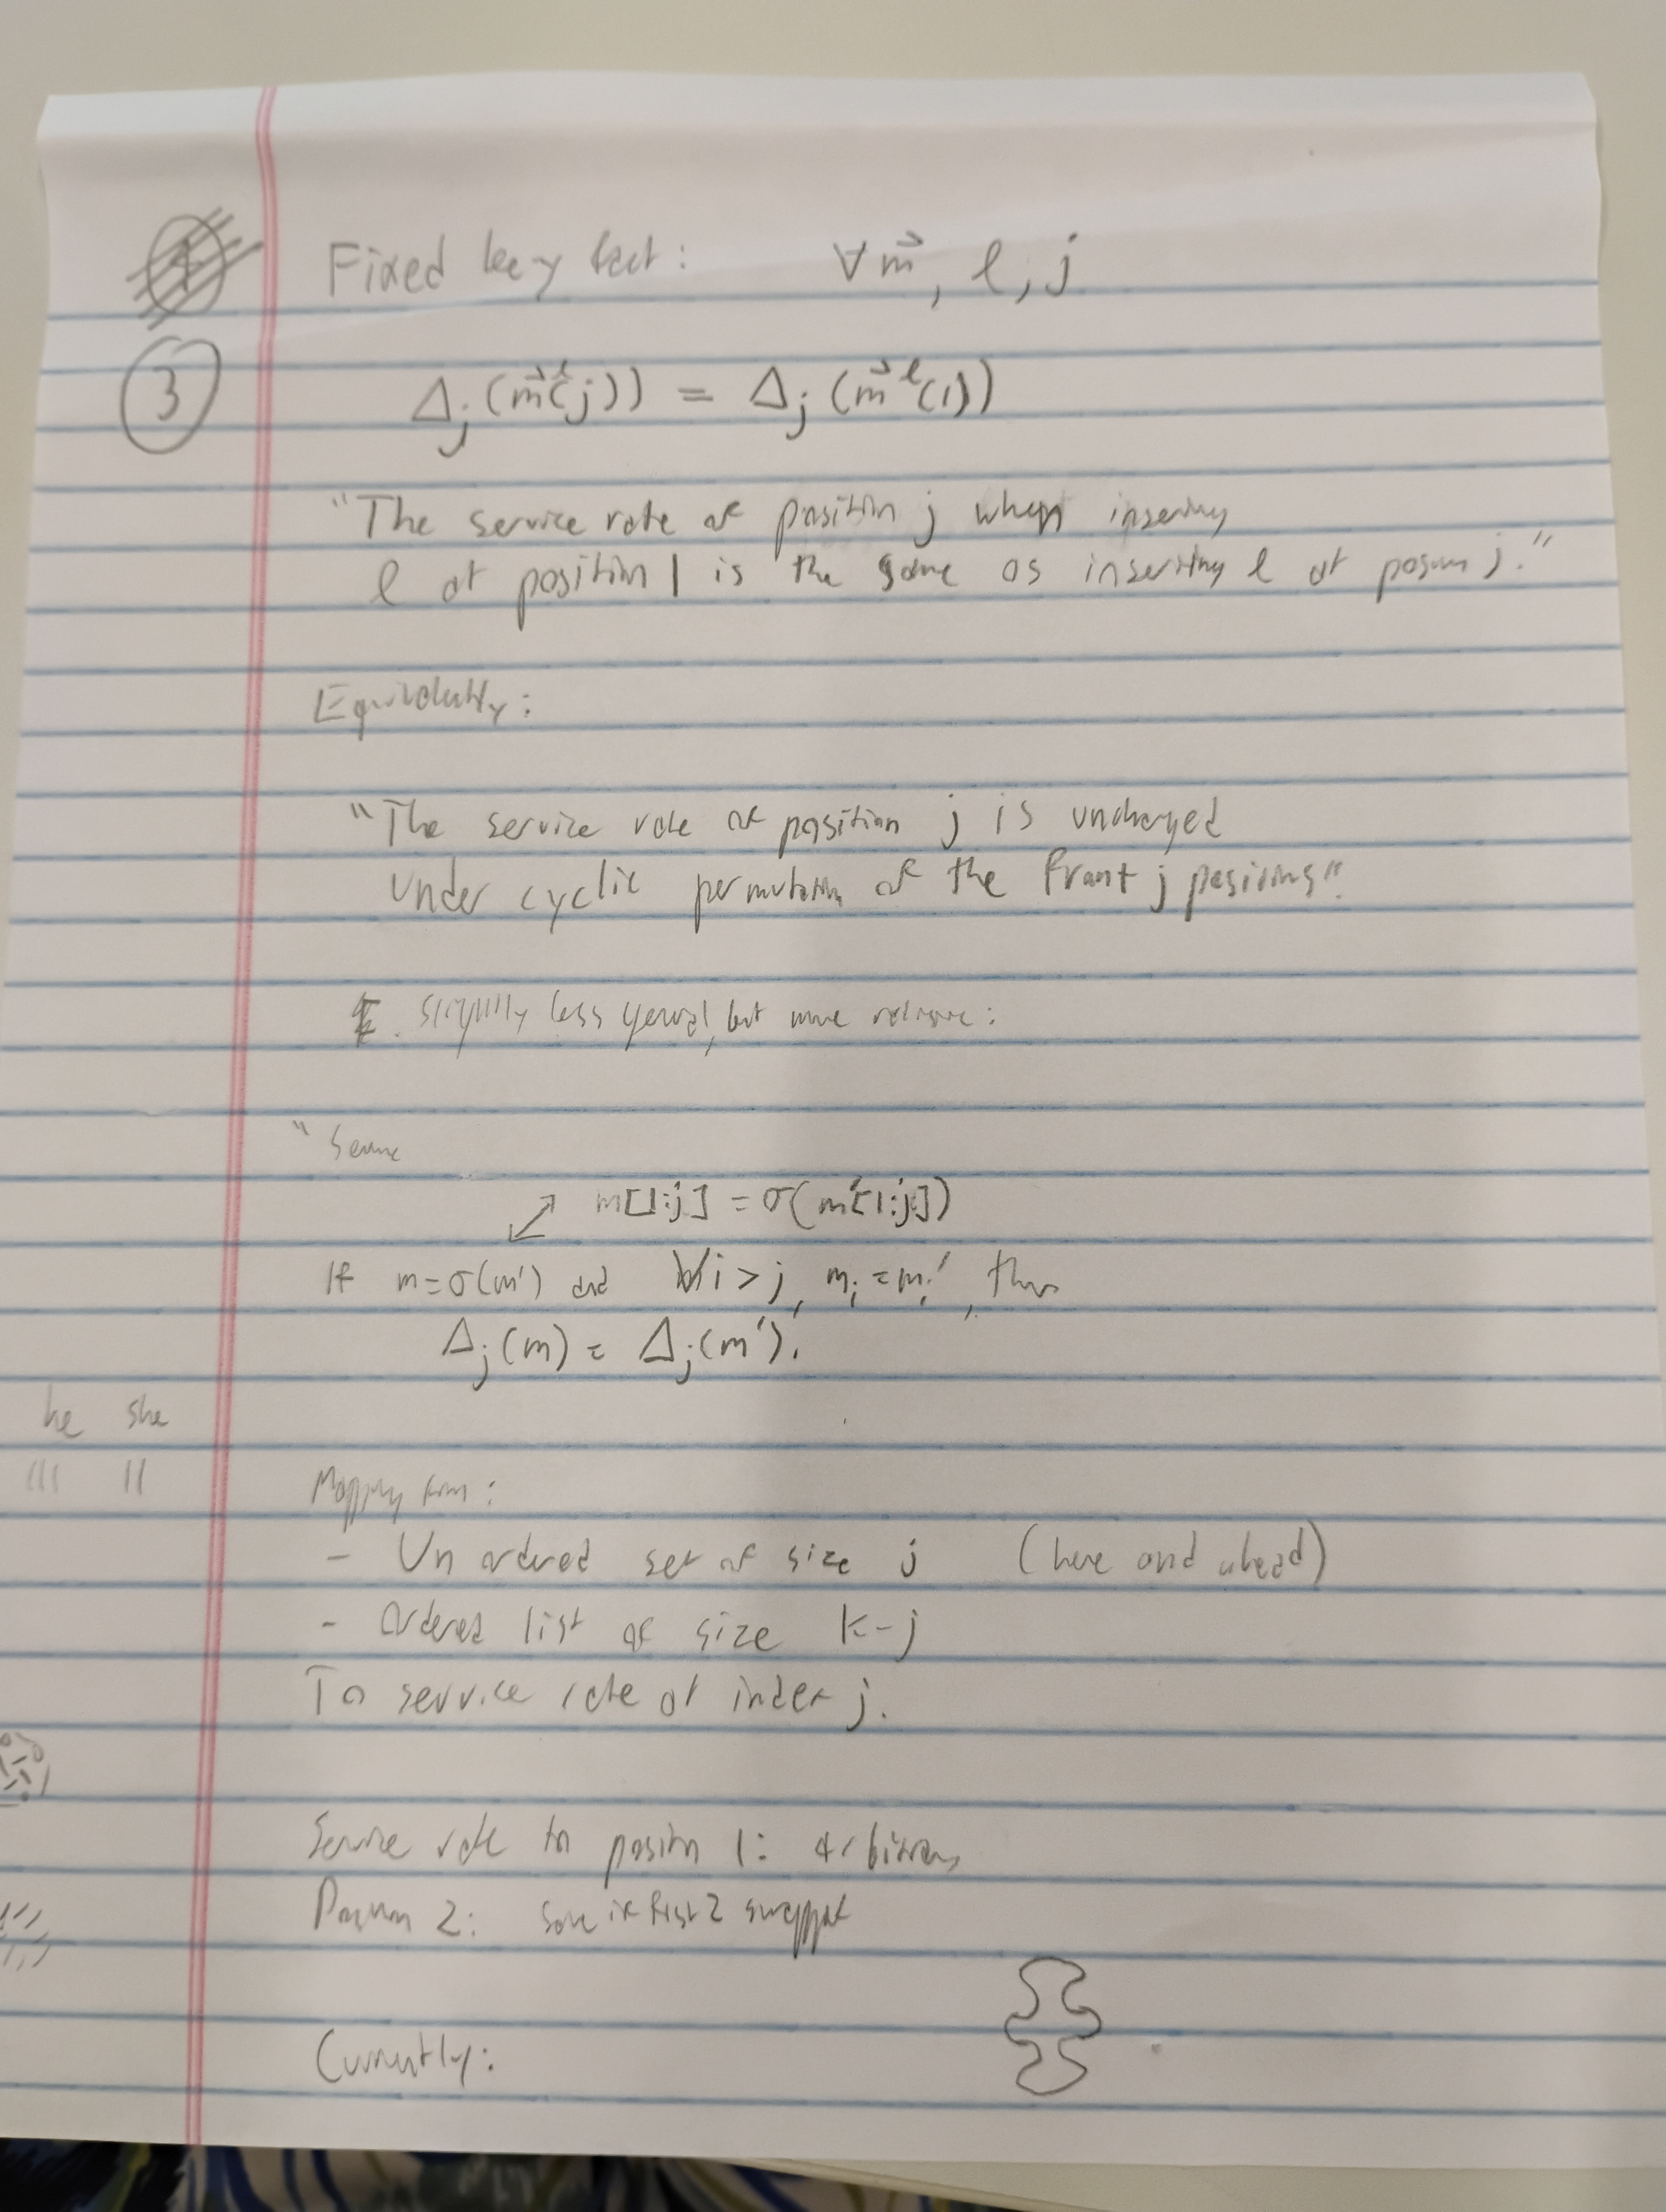 Fixed key fact: ∀ m⃗, ℓ, j
③ Δ_j(m⃗^ℓ(j)) = Δ_j(m⃗^ℓ(1))
"The service rate of position j when inserting
ℓ at position 1 is the same as inserting ℓ at position j."
Equivalently:
"The service rate of position j is unchanged
under cyclic permutation of the front j positions".
Slightly less general, but more :
"Serve
m[1:j] = σ(m'[1:j])
If m = σ(m') and ∀i > j, m_i = m_i', then
Δ_j(m) = Δ_j(m').
he she
||| ||
Mapping from:
- Unordered set of size j (here and ahead)
- Ordered list of size k-j
To service rate of index j.
Service rate to position 1: Arbitrary
Position 2: Same if first 2 swapped
Currently: